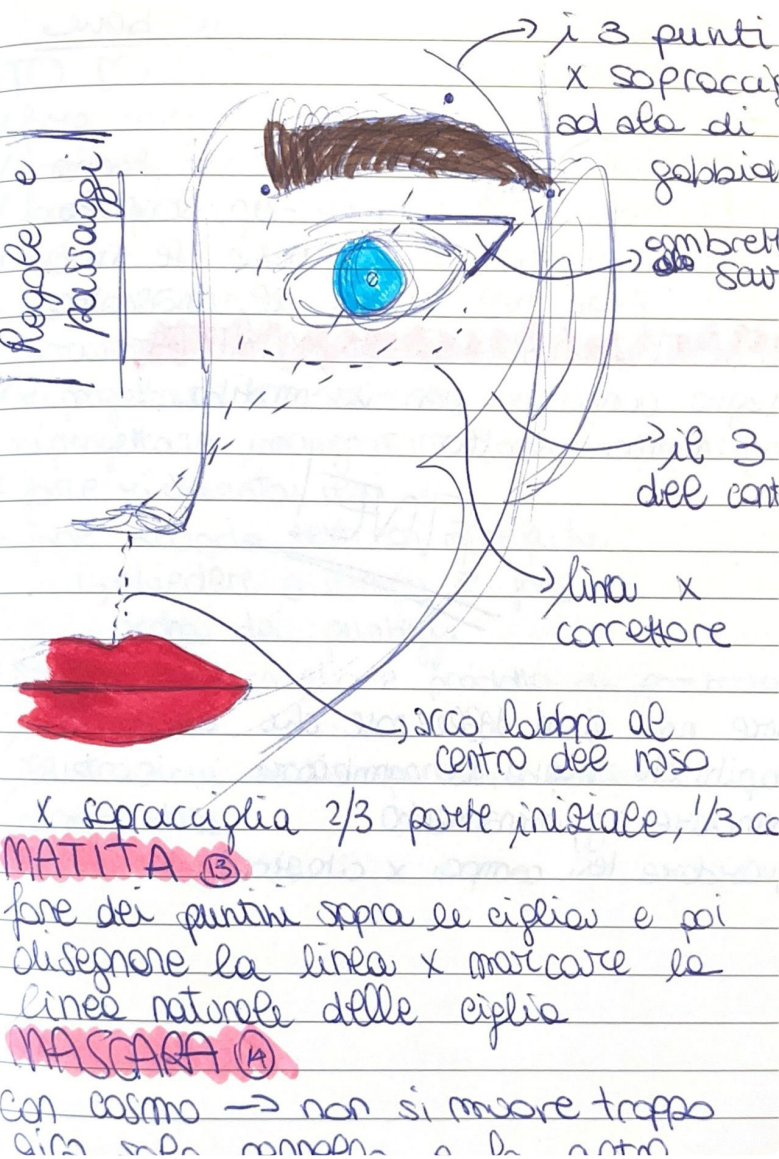 Regole e
passaggi
i 3 punti
x sopracci
ad ala di
gabbia
ombrett
il 3
del cont
linea x
correttore
arco labbra al
centro del naso
x sopracciglia 2/3 parte iniziale, 1/3 co
MATITA 13
fare dei puntini sopra le ciglia e poi
disegnare la linea x marcare la
linea naturale delle ciglia
MASCARA 14
con cosmo → non si muove troppo